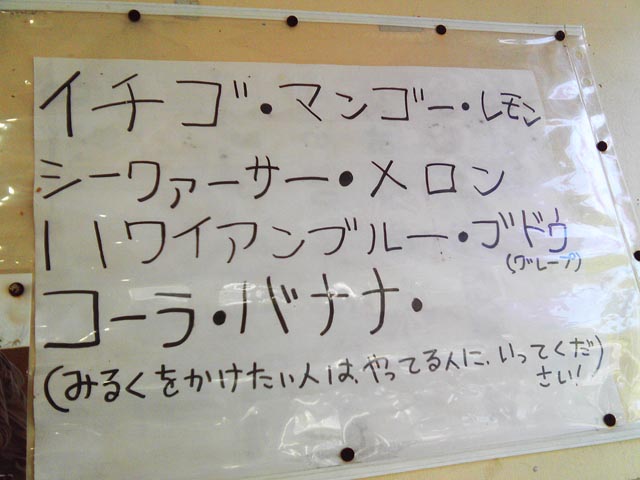 イチゴ・マンゴー・レモン
シーワァーサー・メロン
ハワイアンブルー・ブドウ
(グレープ)
コーラ・バナナ・
(みるくをかけたい人は、やってる人に、いってくだ
さい!)